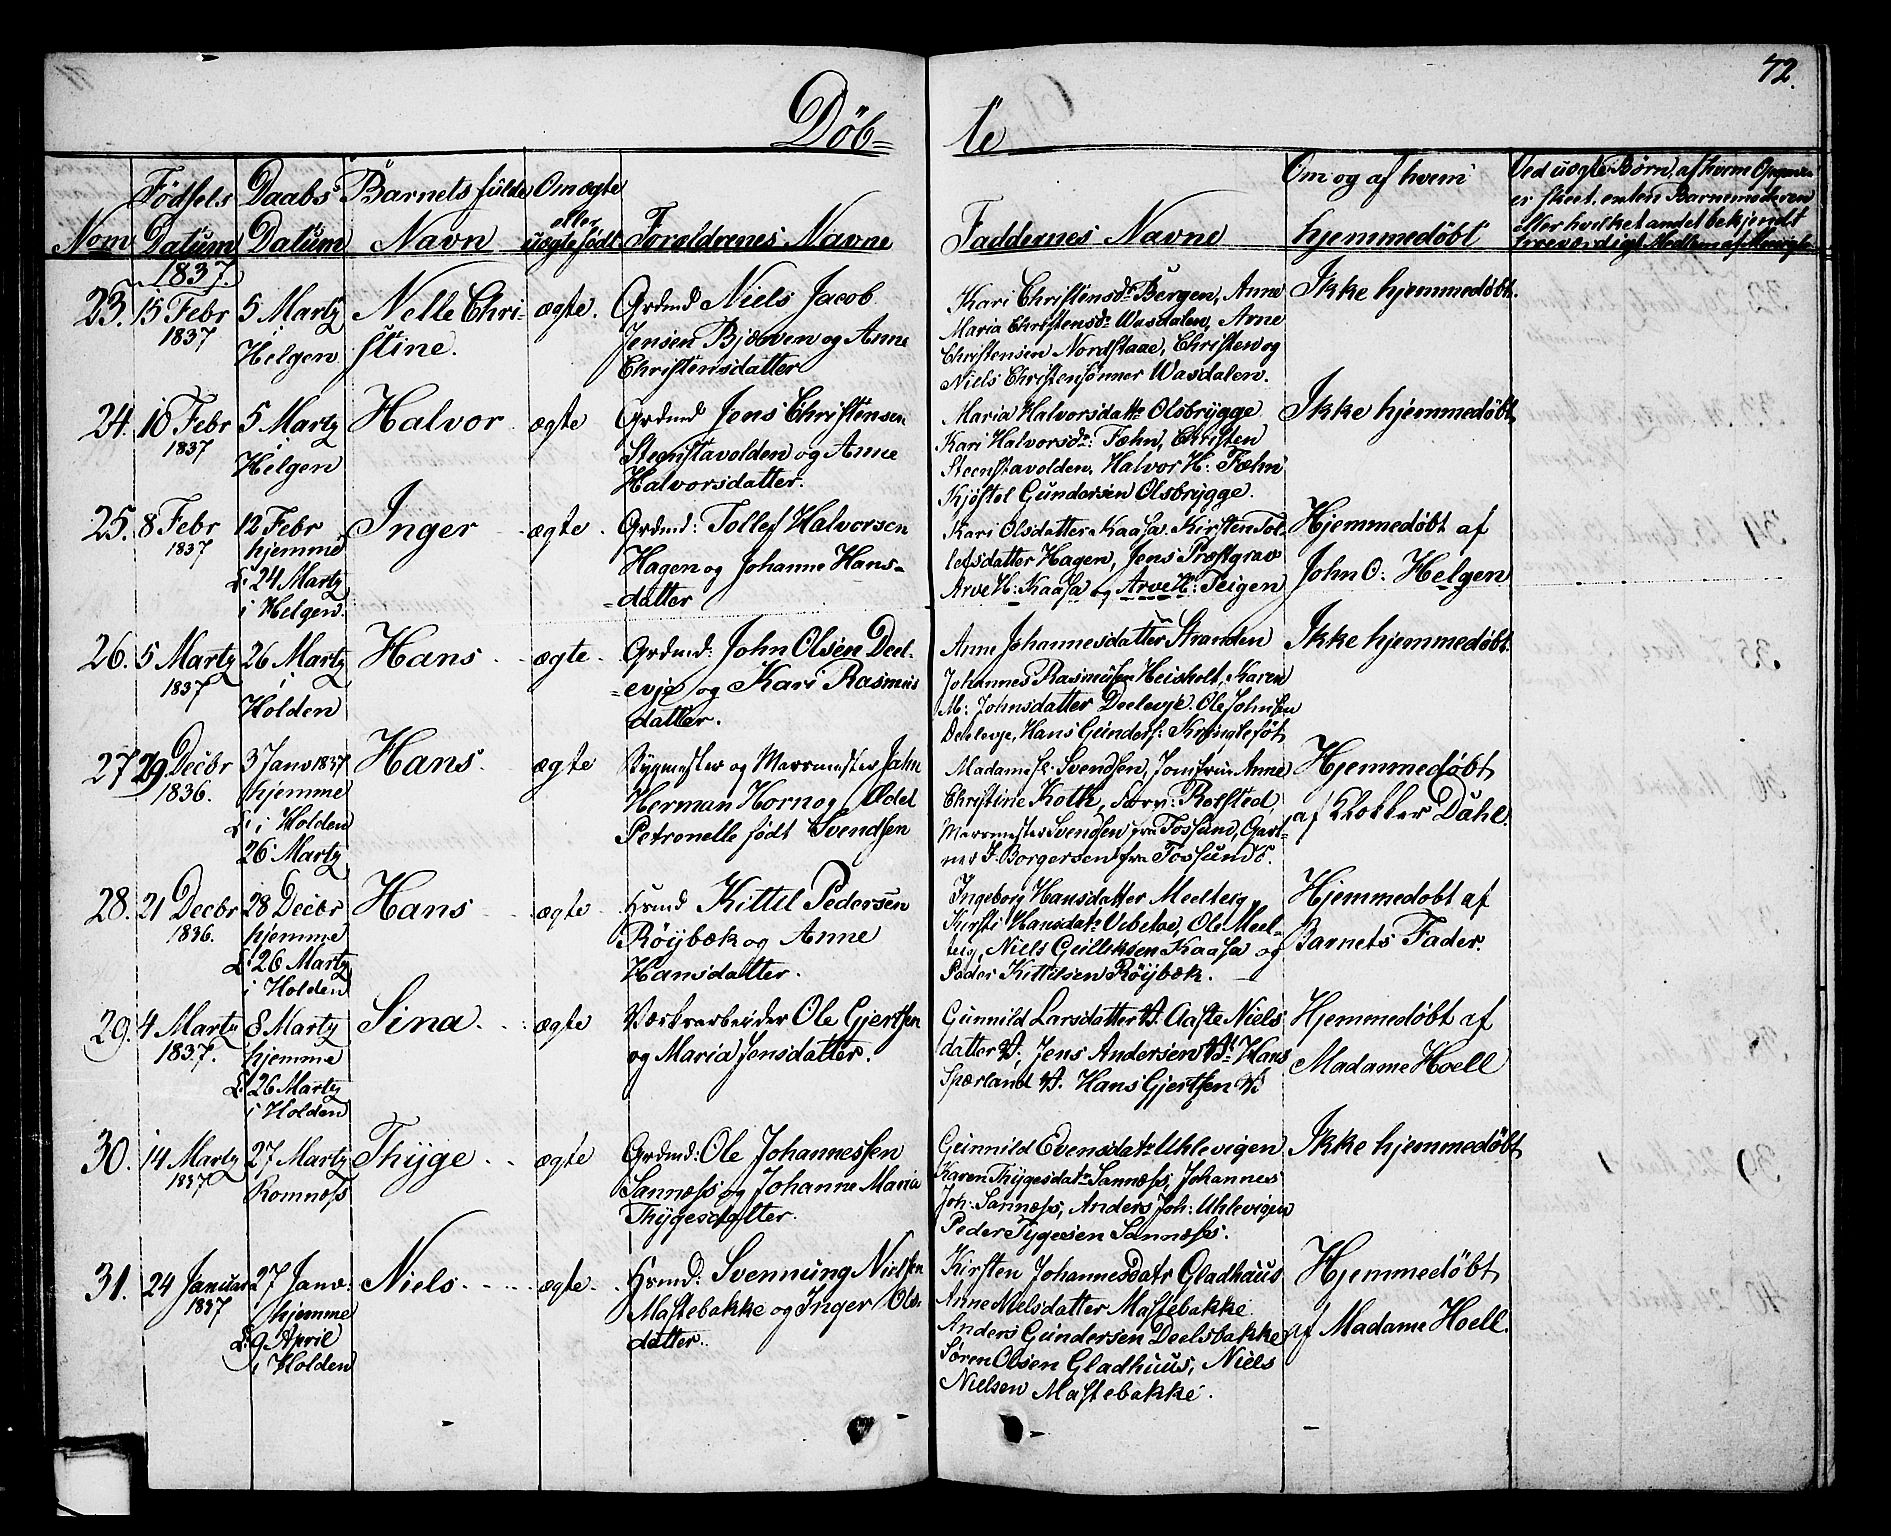 72.
Döb= te
Nom
Födsels Datum
Daabs Datum
Barnets fulde Navn
Om ægte eller uægte födt
Forældrenes Navne
Faddernes Navne
Om og af hvem hjemmedöbt
Ved uægte Børn, af hvem
er skeet, enten Barnemoderen
eller hvilket andet bekjendt
troeværdigt Medlem af
1837.
23. 15 Febr 1837
5 Martz i Helgen
Nelle Chri-
stine.
ægte.
Grdmd Niels Jacob
Jensen Bjerven og Anne
Christensdatter
Kari Christensdr Bergen, Anne
Maria Christensdr Wasdalen, Arne
Christensen Nordstaae, Christen og
Niels Christensønner Wasdalen.
Ikke hjemmedöbt.
24. 16 Febr 1837
5 Martz i Helgen
Halvor
ægte
Grdmd Jens Christensen
Steenstavolden og Anne
Halvorsdatter.
Maria Halvorsdattr Olsbrygge
Kari Halvorsdr: Fæhn, Christen
Steenstavolden, Halvor H: Fæhn
Kjöstel Gundersen Olsbrygge.
Ikke hjemmedöbt
25. 8 Febr 1837
12 Febr
hjemme
d: 24 Martz
i Helgen.
Inger
ægte.
Grdmd: Tollef Halvorsen
Hagen og Johanne Hans-
=datter
Kari Olsdatter Kaasa. Kirsten Tol-
lefsdatter Hagen, Jens Prestgrav
Arve H: Kaasa og Arve H: Teigen
Hjemmedöbt af
John O: Helgen
26. 5 Martz 1837
26 Martz
i
Holden
Hans
ægte.
Grdmd: John Olsen Deel-
=evje og Kari Rasmus
datter.
Anne Johannesdatter Stranden
Johannes Rasmusen Heisholt, Karen
M: Johnsdatter Deelevje. Ole Johnsen
Deelevje, Hans Gunders: Kringleföt
Ikke hjemmedöbt.
27 29 Decbr 1836.
3 Janv 1837
hjemme
d: i Holden
26 Martz
Hans
ægte
Bygmester og Marsmester Jahn
Herman Horn og Ædel
Petronelle födt Svendsen
Madame Sl. Svendsen, Jomfrue Anne
Christine Koth, Rolsted,
Marsmester Svendsen fra Fossund, Gart-
ner J. Borgersen fra Fossund.
Hjemmedöbt
af Klokker Dahl.
28. 21 Decbr 1836.
28 Decbr
hjemme
d: 26 Martz
i Holden
Hans
ægte
Hsmd Kittil Pedersen
Röijbæk og Anne
Hansdatter.
Ingeborg Hansdatter Meelteig
Kirsti Hansdatr Vebetoe, Ole Meel-
teig, Niels Gulliksen Kaasa og
Peder Kittilsen Röijbæk.
Hjemmedöbt af
Barnets Fader.
29. 4 Martz 1837.
8 Martz
hjemme
d: 26 Martz
i Holden
Sina
ægte
Værksarbeider Ole Gjertsen
og Maria Jensdatter.
Gunnild Larsdatter V. Aaste Niels
datter V. Jens Andersen V. Hans
Spærland V. Hans Gjertsen V.
Hjemmedöbt af
Madame Hoell
30. 14 Martz 1837
27 Martz
Romnæss
Thyge
ægte
Grdmd: Ole Johannessen
Sannæss og Johanne Maria
Thygesdatter.
Gunnild Evensdatr Uhlevigen
Karen Thygesdatr Sannæss, Johannes
Joh: Sannæss, Anders Joh: Uhlevigen
Peder Tygesen Sannæss.
Ikke hjemmedöbt
31. 24 Januar 1837
27 Janv.
hjemme
d: 9 April
i Holden
Niels
ægte.
Hsmd: Svennung Nielsen
Mastebakke og Inger Ols-
datter.
Kirsten Johannesdatr Gladhuus
Anne Nielsdatter Mastebakke
Anders Gundersen Deelsbakke
Sören Olsen Gladhuus, Niels
Nielsen Mastebakke.
Hjemmedöbt
af Madame Hoell.